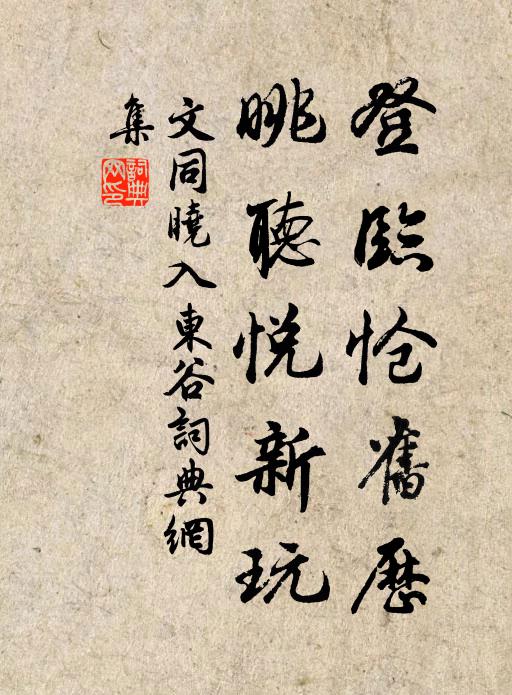 登臨怆舊歷
眺聽悅新玩
文同曉入東谷詞典網
集
詞典網印